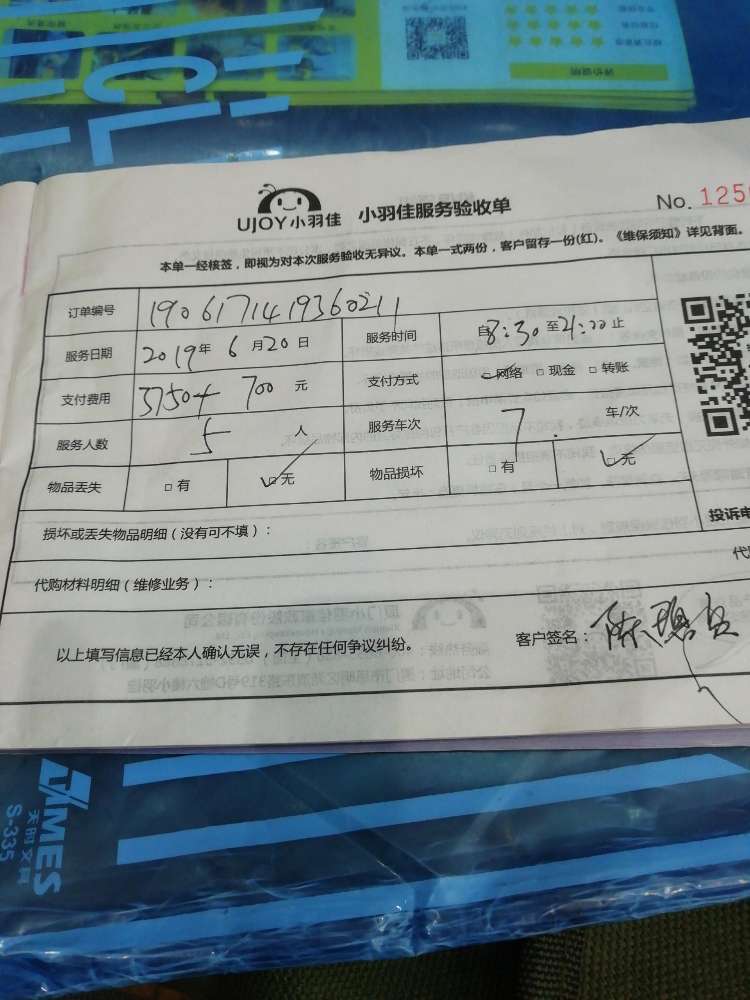 UJOY小羽佳 小羽佳服务验收单
No. 125
本单一经核签，即视为对本次服务验收无异议。本单一式两份，客户留存一份(红)。《维保须知》详见背面。
订单编号 1906171419360211
服务日期 2019年 6月20日 服务时间 自8:30至21:00止
支付费用 3750+700元 支付方式 □网络 □现金 □转账
服务人数 5人 服务车次 7. 车/次
物品丢失 □有 □无 物品损坏 □有 □无
投诉电
损坏或丢失物品明细（没有可不填）：
代购材料明细（维修业务）：
以上填写信息已经本人确认无误，不存在任何争议纠纷。 客户签名：
TIMES
天时文具
S-335